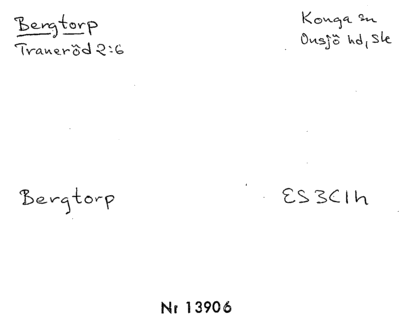 Bergtorp
Traneröd 2:6
Konga sn
Onsjö hd, Sk
Bergtorp
ES3C1h
Nr 13906